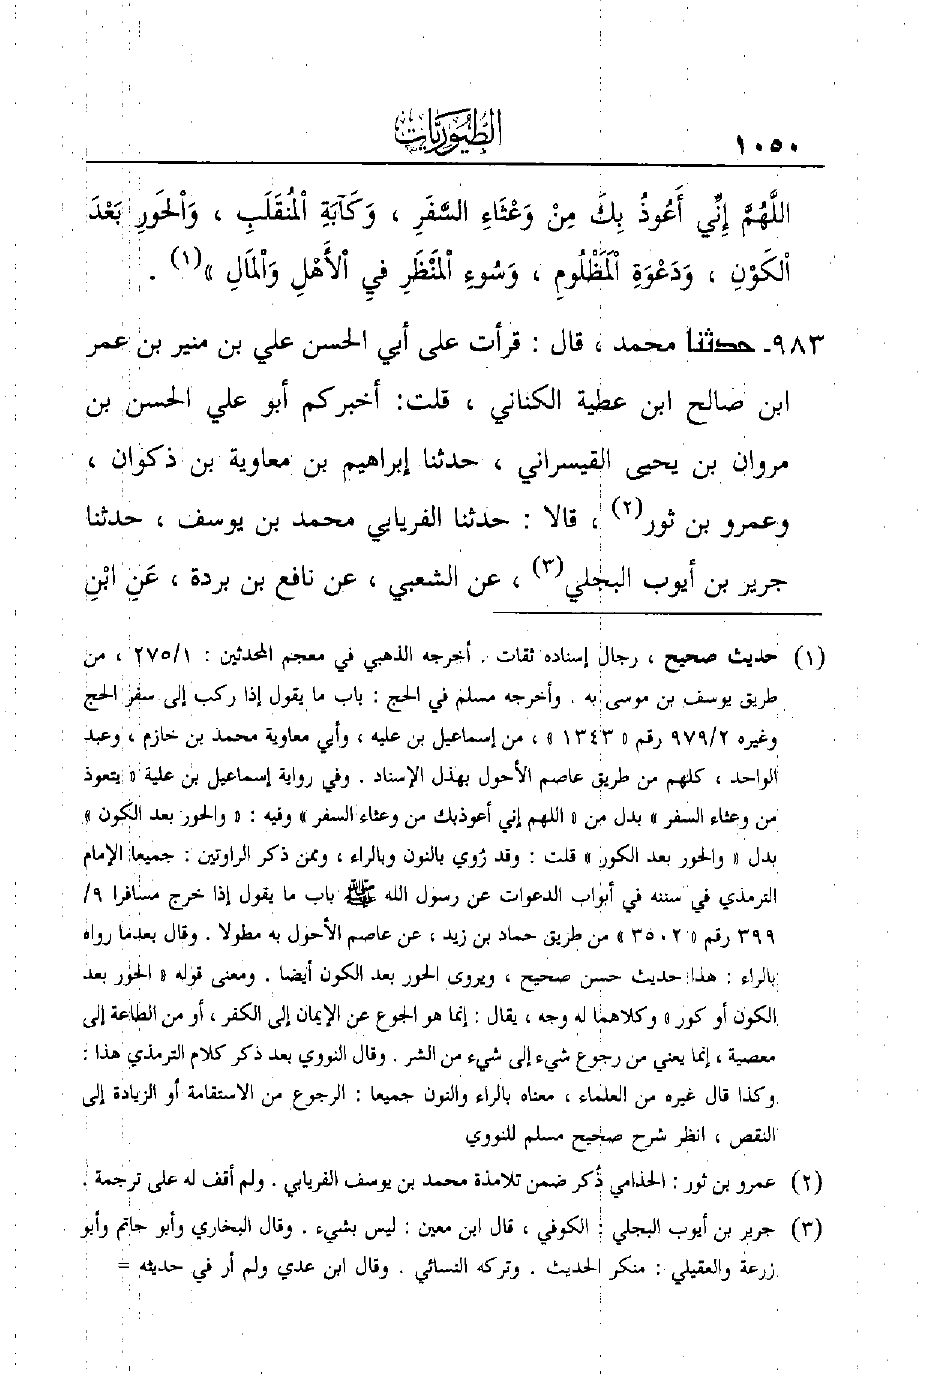 ١٠٥٠
الطيوريات
اللَّهُمَّ إِنِّي أَعُوذُ بِكَ مِنْ وَعْثَاءِ السَّفَرِ ، وَكَآبَةِ الْمُنقَلَبِ ، وَالْحَورِ بَعْدَ
الْكَوْنِ ، وَدَعْوَةِ الْمَظْلُومِ ، وَسُوءِ الْمَنْظَرِ فِي الْأَهْلِ وَالْمَالِ »(١) .
٩٨٣- حدثنا محمد ، قال : قرأت على أبي الحسن علي بن منير بن عمر
ابن صالح ابن عطية الكناني ، قلت: أخبركم أبو علي الحسن بن
مروان بن يحيى القيسراني ، حدثنا إبراهيم بن معاوية بن ذكوان ،
وعمرو بن ثور(٢) ، قالا : حدثنا الفريابي محمد بن يوسف ، حدثنا
جرير بن أيوب البجلي(٣) ، عن الشعبي ، عن نافع بن بردة ، عَنِ ابْنِ
(١) حديث صحيح ، رجال إسناده ثقات . أخرجه الذهبي في معجم المحدثين : ٢٧٥/١ ، من
طريق يوسف بن موسى به . وأخرجه مسلم في الحج : باب ما يقول إذا ركب إلى سفر الحج
وغيره ٩٧٩/٢ رقم « ١٣٤٣ » ، من إسماعيل بن عليه ، وأبي معاوية محمد بن خازم ، وعبد
الواحد ، كلهم من طريق عاصم الأحول بهذل الإسناد . وفي رواية إسماعيل بن علية « يتعوذ
من وعثاء السفر » بدل من « اللهم إني أعوذبك من وعثاء السفر » وفيه : « والحور بعد الكون »
بدل « والحور بعد الكور » قلت : وقد رُوي بالنون وبالراء ، وممن ذكر الراوتين : جميعا الإمام
الترمذي في سننه في أبواب الدعوات عن رسول الله ﷺ باب ما يقول إذا خرج مسافرا ٩/
٣٩٩ رقم « ٣٥٠٢ » من طريق حماد بن زيد ، عن عاصم الأحول به مطولا . وقال بعدما رواه
بالراء : هذا حديث حسن صحيح ، ويروى الحور بعد الكون أيضا . ومعنى قوله « الحور بعد
الكون أو كور » وكلاهما له وجه ، يقال : إنما هو الجوع عن الإيمان إلى الكفر ، أو من الطاعة إلى
معصية ، إنما يعني من رجوع شيء إلى شيء من الشر . وقال النووي بعد ذكر كلام الترمذي هذا :
وكذا قال غيره من العلماء ، معناه بالراء والنون جميعا : الرجوع من الاستقامة أو الزيادة إلى
النقص ، انظر شرح صحيح مسلم للنووي
(٢) عمرو بن ثور : الحذامي ذُكر ضمن تلامذة محمد بن يوسف الفريابي . ولم أقف له على ترجمة .
(٣) جرير بن أيوب البجلي : الكوفي ، قال ابن معين : ليس بشيء . وقال البخاري وأبو حاتم وأبو
زرعة والعقيلي : منكر الحديث . وتركه النسائي . وقال ابن عدي ولم أر في حديثه =